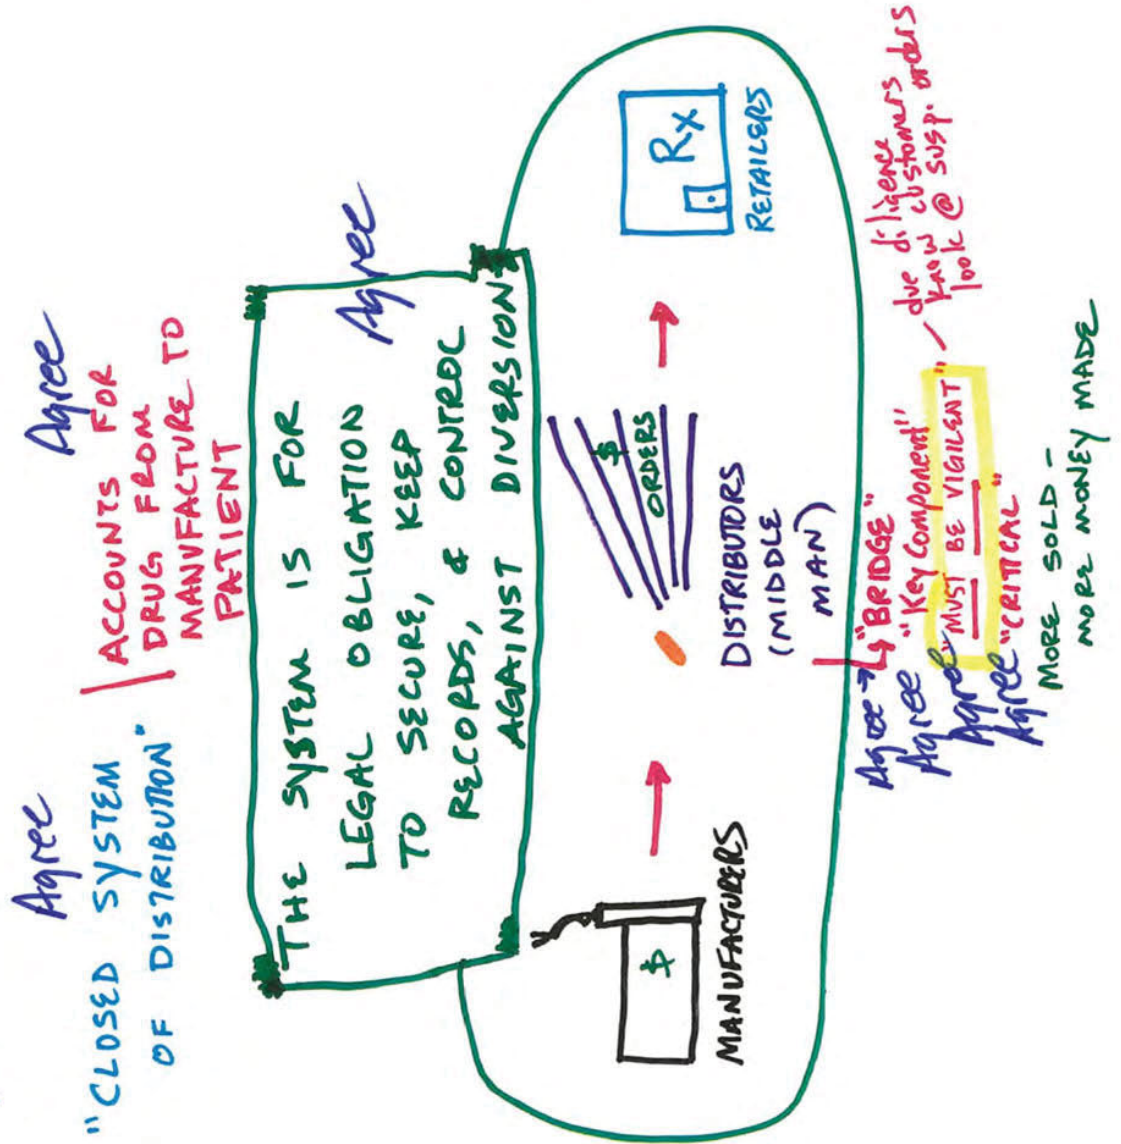 Agree
Agree
"CLOSED SYSTEM
OF DISTRIBUTION"
ACCOUNTS FOR
DRUG FROM
MANUFACTURE TO
PATIENT
THE SYSTEM IS FOR
LEGAL OBLIGATION
TO SECURE, KEEP
RECORDS, & CONTROL
AGAINST DIVERSION
Agree
$
MANUFACTURERS
$
ORDERS
DISTRIBUTORS
(MIDDLE
MAN)
Rx
RETAILERS
Agree → "BRIDGE"
Agree "Key Component"
Agree "MUST BE VIGILENT" – due diligence
know customers
look @ susp. orders
Agree "CRITICAL"
MORE SOLD -
MORE MONEY MADE